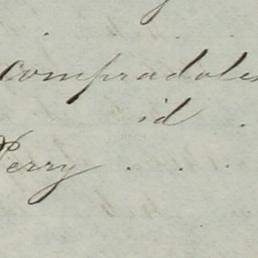 compradoles
id .
Perry . . .